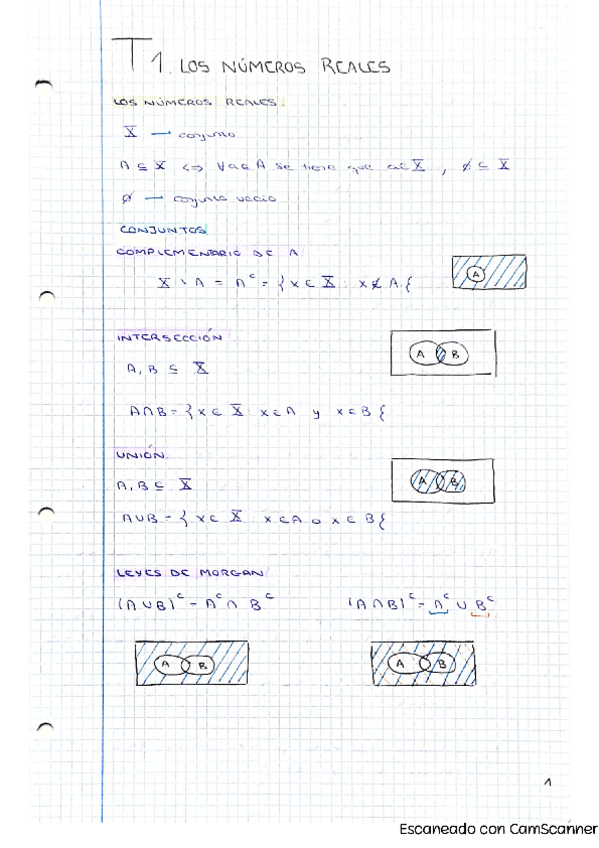 T1. LOS NÚMEROS REALES
LOS NÚMEROS REALES.
X → conjunto
A ⊆ X ⇔ ∀a∈A se tiene que a∈X , ∅ ⊆ X
∅ → conjunto vacío
CONJUNTOS
COMPLEMENTARIO DE A
X \ A = Aᶜ = { x ∈ X : x ∉ A }
A
INTERSECCIÓN
A, B ⊆ X
A B
A∩B = { x ∈ X : x∈A y x∈B }
UNIÓN
A, B ⊆ X
A B
A∪B = { x ∈ X : x∈A o x∈B }
LEYES DE MORGAN
(A∪B)ᶜ = Aᶜ ∩ Bᶜ (A∩B)ᶜ = Aᶜ ∪ Bᶜ
A B A B
1
Escaneado con CamScanner